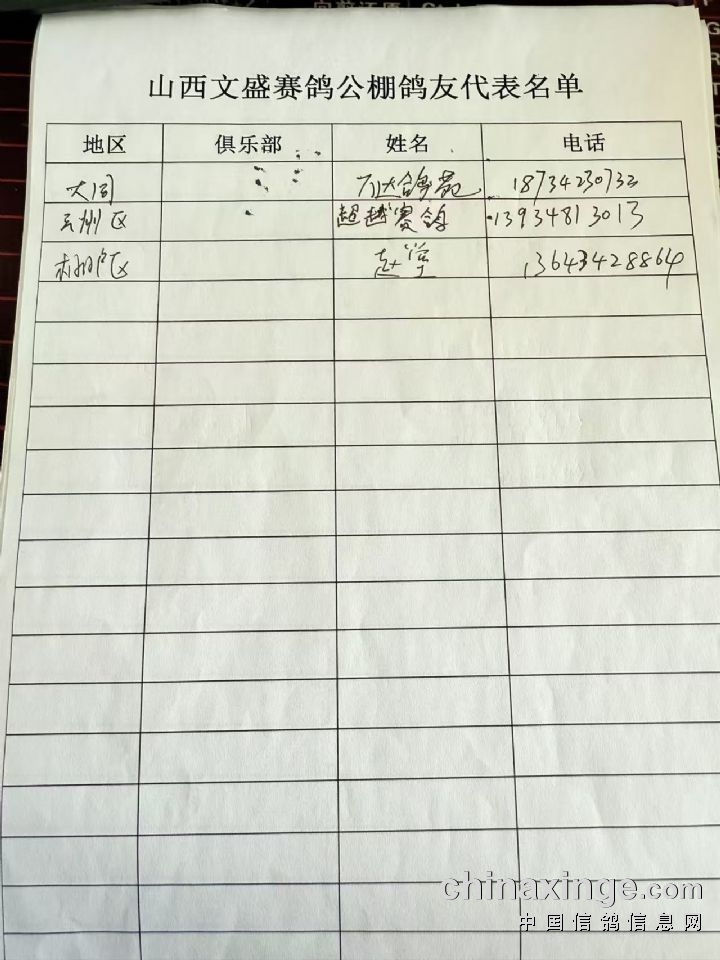 山西文盛赛鸽公棚鸽友代表名单
地区 俱乐部 姓名 电话
大同 鸽苑 18734230732
云州区 超越赛鸽 13934813013
赵莹 13643428864
chinaxinge.com
中国信鸽信息网